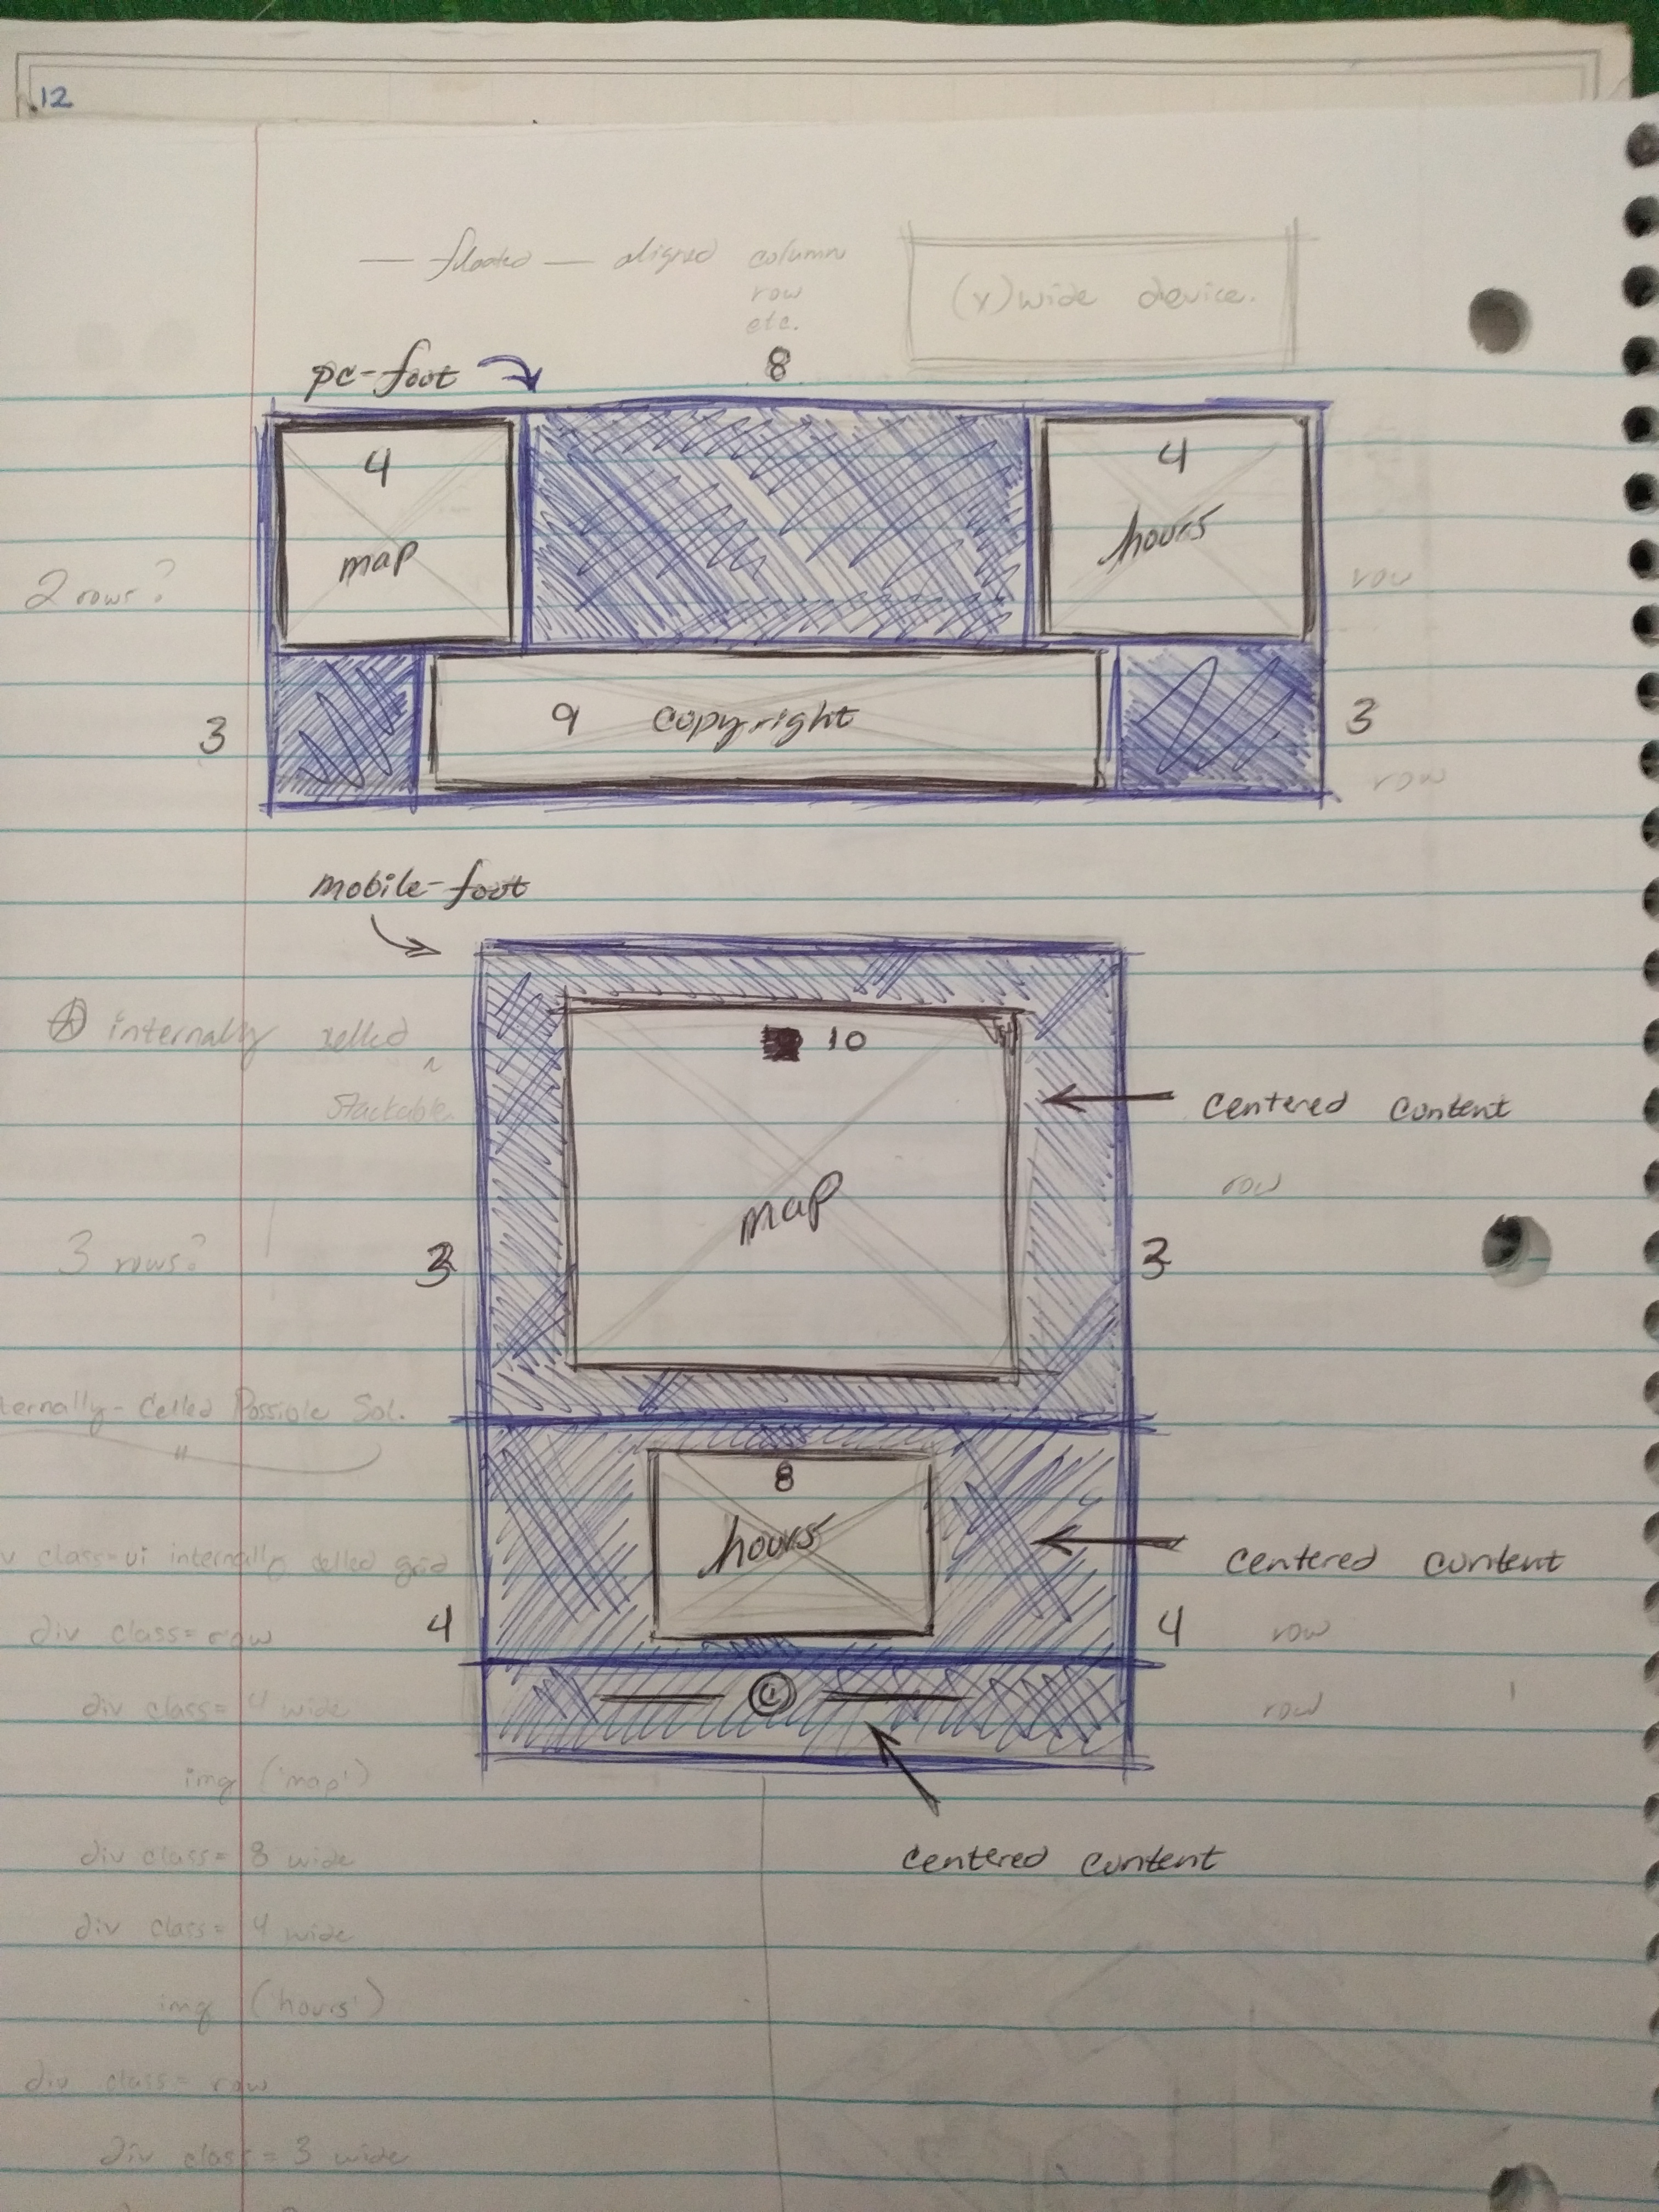 12
— floated — aligned column
row
etc.
(x) wide device.
pc-foot
8
4
map
4
hours
2 rows?
row
3
9 copyright
3
row
mobile-foot
internally xelled
stackable.
10
centered content
map
row
3 rows?
3
3
ternally-Celled Possible Sol.
"
8
hours
centered content
v class=ui internally celled grid
4
4
row
div class=row
©
row
div class= 4 wide
img ('map')
centered content
div class= 8 wide
div class= 4 wide
img ('hours')
div class= row
div class= 3 wide